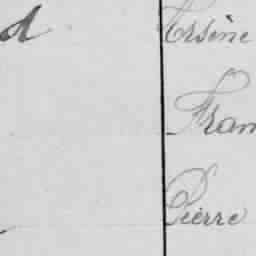 d Arsène
Fran
Pierre